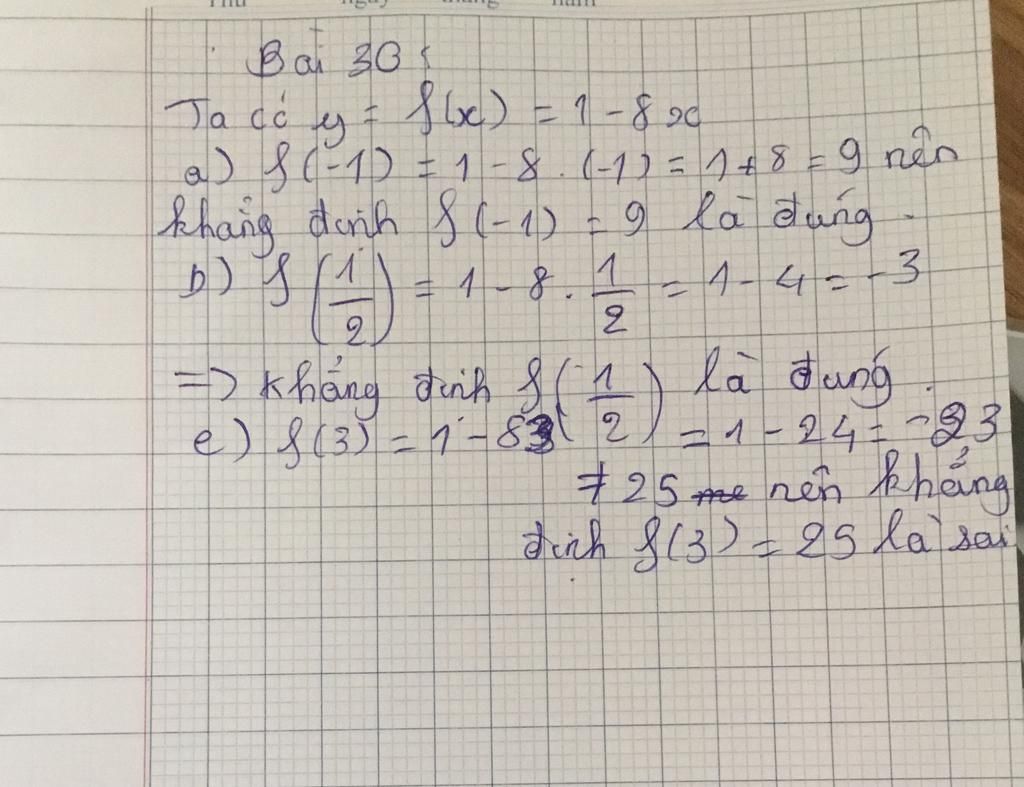 Thứ ngày tháng năm
Bài 30:
Ta có y = f(x) = 1 - 8x
a) f(-1) = 1 - 8 . (-1) = 1 + 8 = 9 nên
khẳng định f(-1) = 9 là đúng.
b) f(1/2) = 1 - 8 . 1/2 = 1 - 4 = -3
=> khẳng định f(1/2) là đúng.
c) f(3) = 1 - 8.3 = 1 - 24 = -23
≠ 25 nên khẳng
định f(3) = 25 là sai